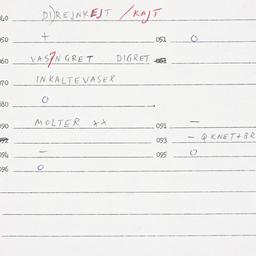 040 DIREJNKEJT /KAJT
050 + 051 O
060 VASINGRET DIGRET
070 INKALTEVASER
080 O
090 MOLTER ×× 091 —
092 093 — QKNET+BR
094 — 095 O
096 O